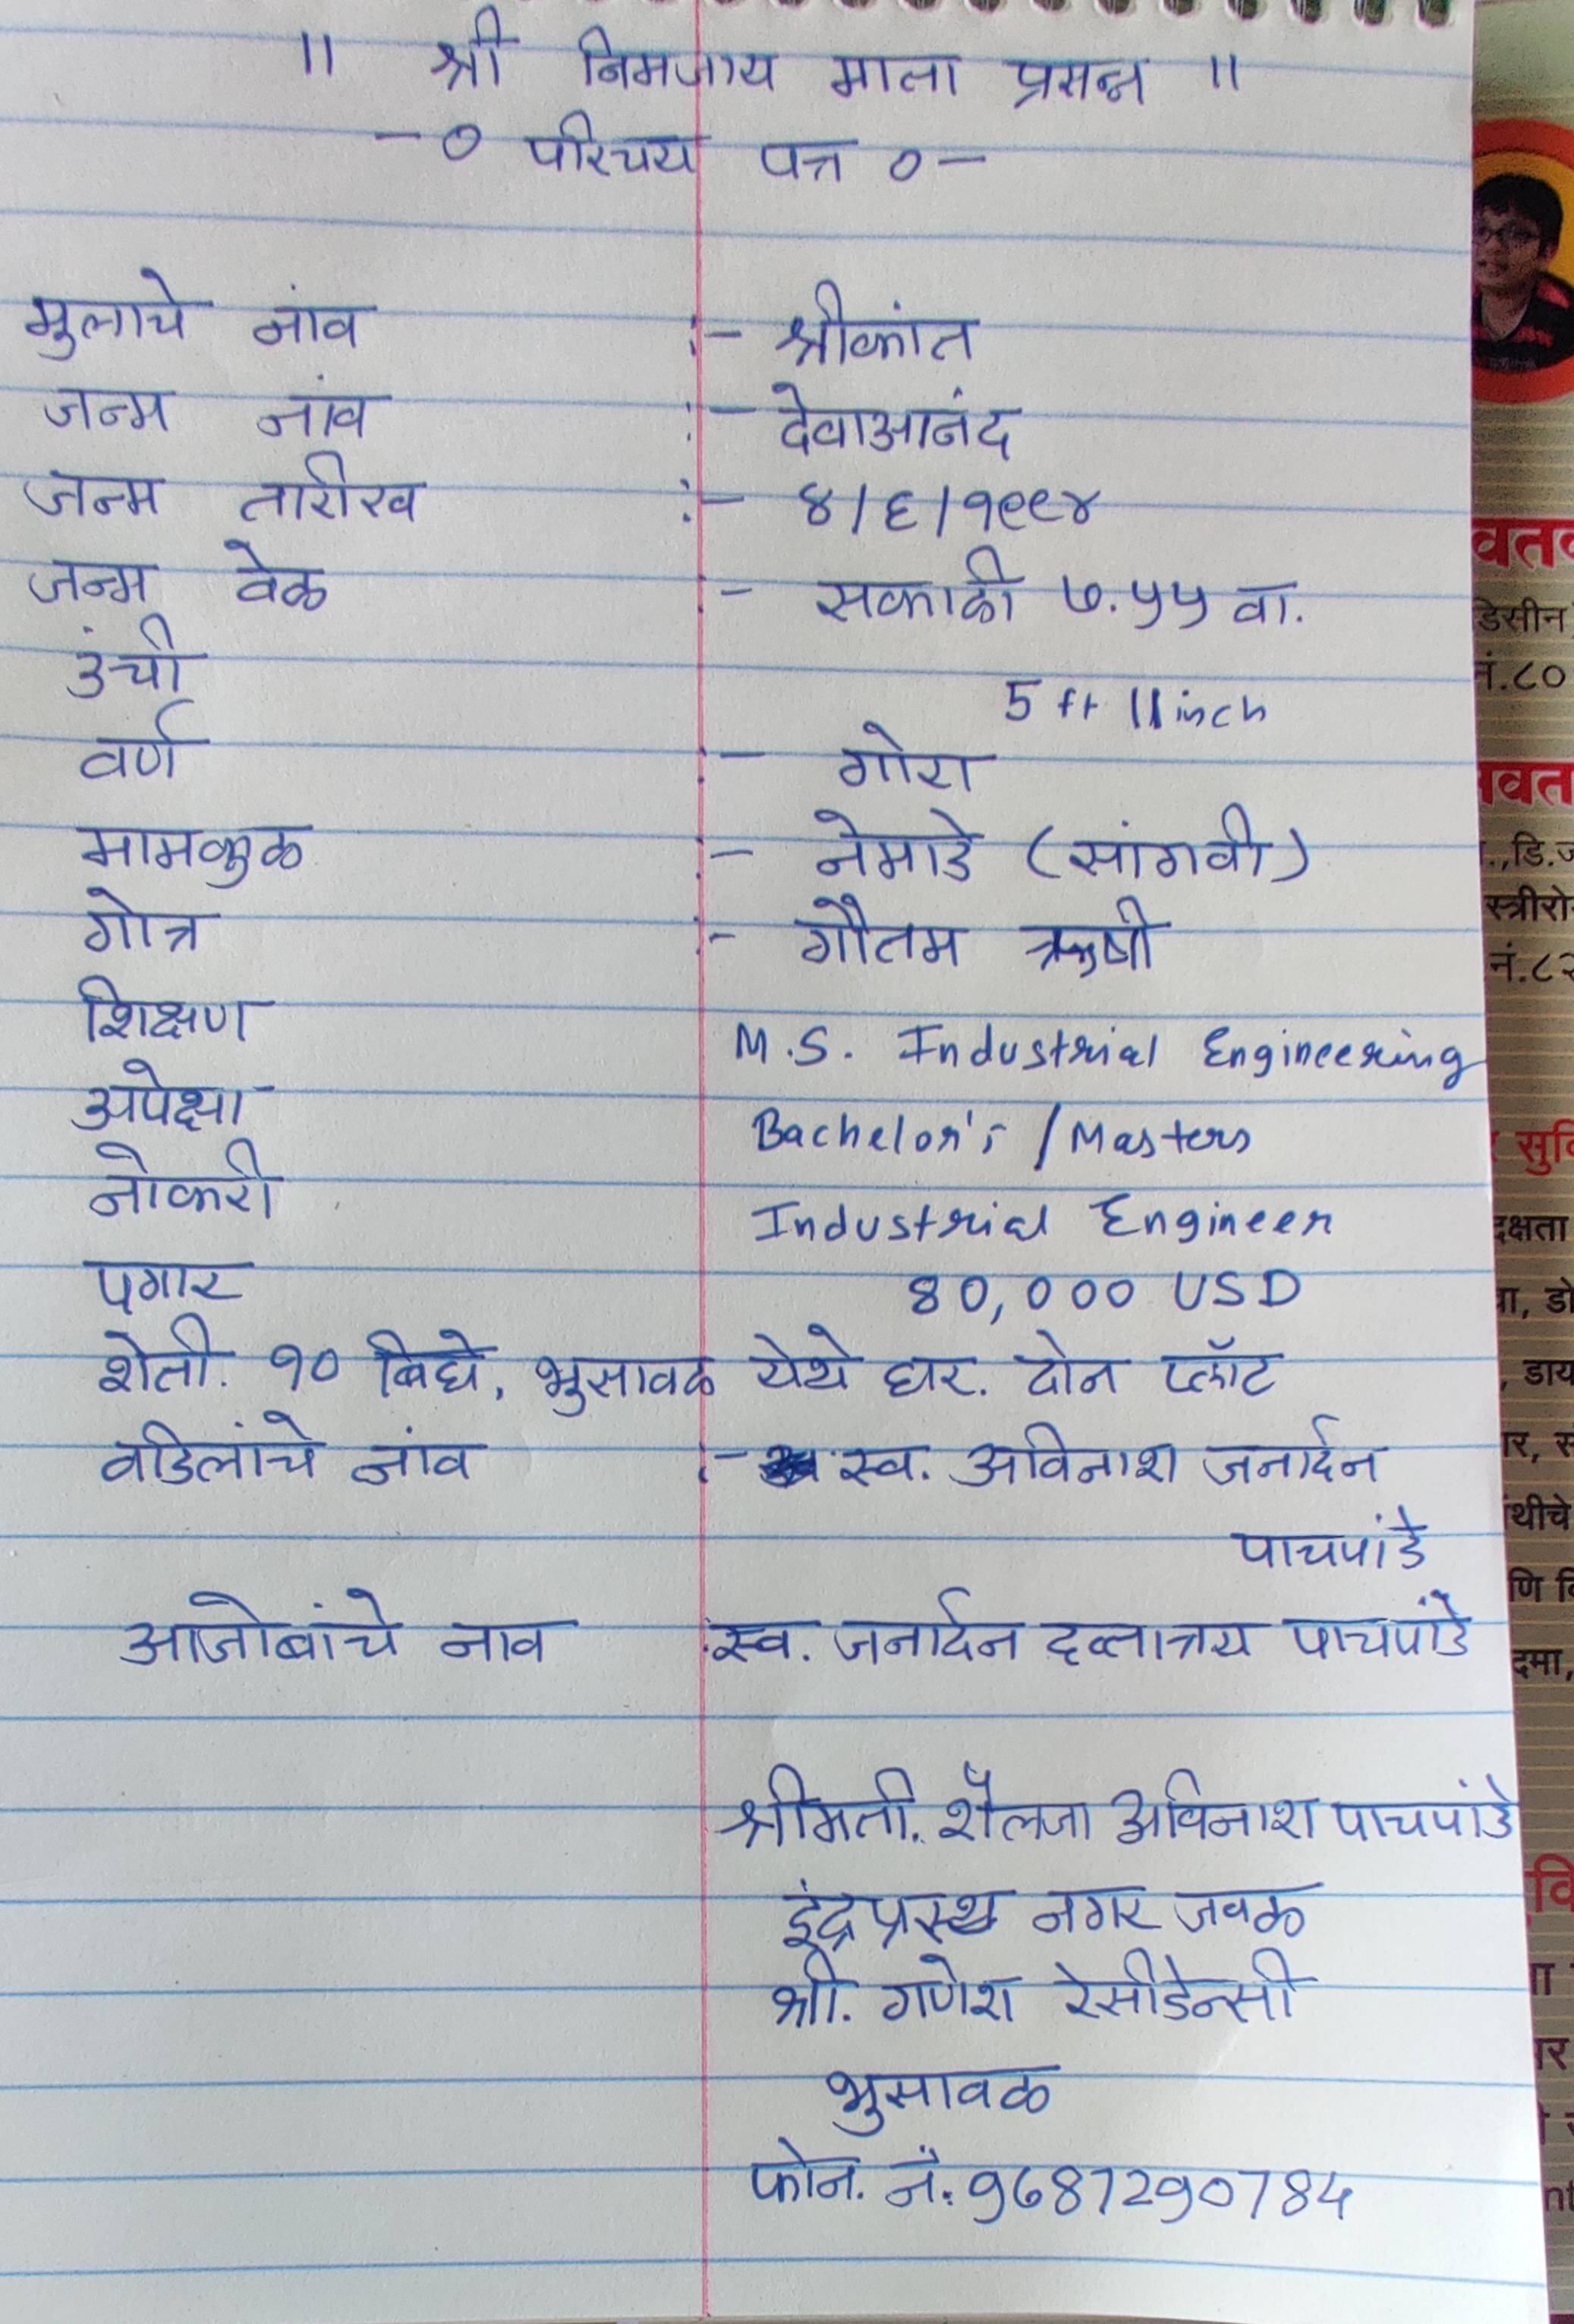 ॥ श्री निमजाय माता प्रसन्न ॥
-० परिचय पत्र ०-
मुलाचे नांव :- श्रीकांत
जन्म नांव :- देवाआनंद
जन्म तारीख :- ४/६/१९९४
जन्म वेळ :- सकाळी ७.५५ वा.
उंची 5 ft 11 inch
वर्ण :- गोरा
मामकुळ :- नेमाडे (सांगवी)
गोत्र :- गौतम ऋषी
शिक्षण M.S. Industrial Engineering
अपेक्षा Bachelor's / Masters
नोकरी Industrial Engineer
पगार 80,000 USD
शेती. १० बिघे, भुसावळ येथे घर. दोन प्लॉट
वडिलांचे नांव :- स्व. अविनाश जनार्दन
पाचपांडे
आजोबांचे नाव :स्व. जनार्दन दत्तात्रय पाचपांडे
श्रीमती. शैलजा अविनाश पाचपांडे
इंद्रप्रस्थ नगर जवळ
श्री. गणेश रेसीडेन्सी
भुसावळ
फोन. नं. 9687290784
वत
डिसीन
नं.८०
वत
.,डि.ज
स्त्रीरो
नं.८२
सुवि
दक्षता
वा, डो
, डाय
र, स
थीचे
णि वि
दमा,
वि